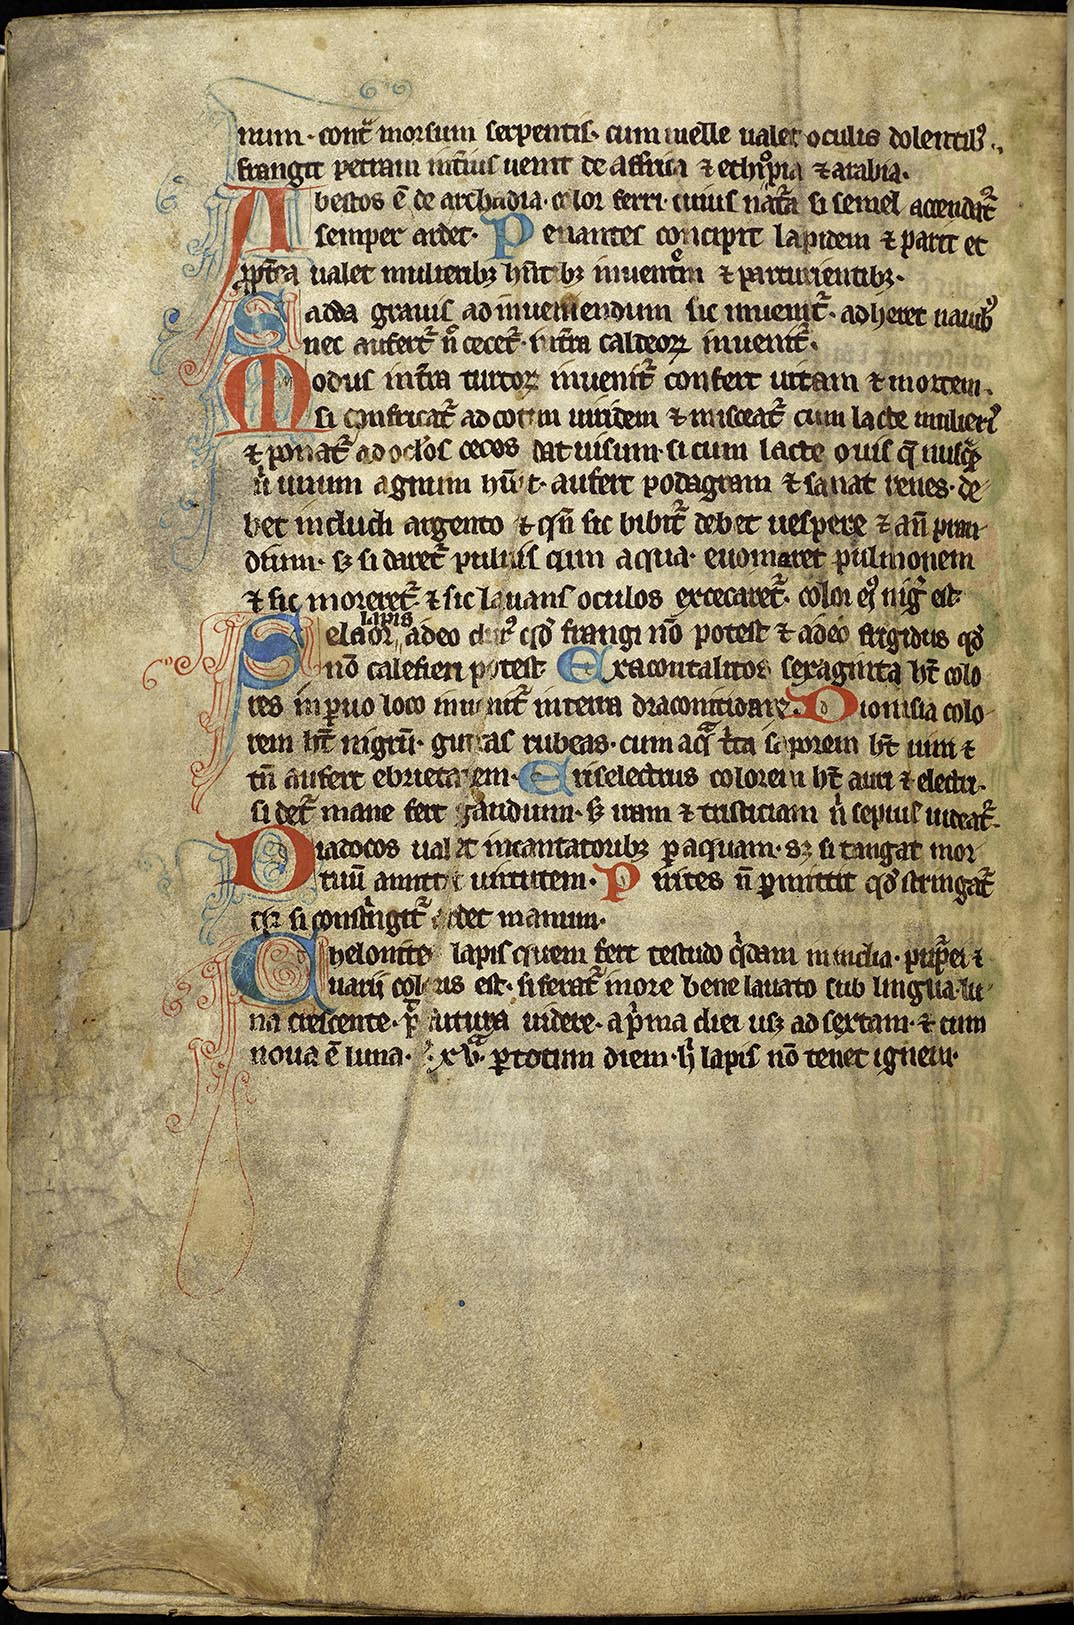 num · cont͛ morsum serpentis · cum melle ualet oculis dolentibꝰ ·
frangit petram intius uenit de affrica ⁊ ethyopia ⁊ arabia ·
Abestos ē de archadia · color ferri · cuius nat͛a si semel accendat͛
semper ardet · Penantes concipit lapidem ⁊ parit et
ꝓpt͛ea ualet mulieribꝫ hūtibꝫ inuentem ⁊ parturientibꝫ ·
Sadda grauis ad inueniendum sic inuenit͛ · adheret nauibꝰ
nec aufert͛ n̊ cecet͛ · int͛ra caldeoꝝ inuenit͛ ·
Modus int͛ra turcoꝝ inuenit͛ confert uitam ⁊ mortem ·
si confricat͛ ad cotem uiridem ⁊ misceat͛ cum lacte mulieris
⁊ ponat͛ ad oclos cecos dat uisum · si cum lacte ouis
n̊ unum agnum hūit · aufert podagram ⁊ sanat renes · de
bet includi argento ⁊ qn̄ sic bibit͛ debet uespere ⁊ an̄ pran
dium · sꝫ si daret͛ puluis cum aqua · euomaret pulmonem
⁊ sic moreret͛ · ⁊ sic lauans oculos excecaret͛ · color eiꝰ nig͛ est
lapis
Selaor adeo durꝰ qd̄ frangi nō potest ⁊ adeo frigidus qd̄
nō calefieri potest Exacontalitos sexaginta ht̄ colo
res in ꝑuo loco inuenit͛ in terra Dionisia colo
rem ht̄ nigrū · guttas rubeas · cum aqᵃ t͛ta saporem ht̄ uini ⁊
tn̄ aufert ebrietatem · Criselectrus colorem ht̄ auri ⁊ electri ·
si det͛ mane fert gaudium · sꝫ iram ⁊ tristiciam n̊ sepius uideat͛ ·
Diadocos ualet incantatoribꝫ ꝑ aquam · sꝫ si tangat mor
tuū amittit uirtutem · Pirites n̄ ꝑmittit qd̄ stringat͛
si constringit͛ ardet manum ·
Chelonites lapis quem fert testudo q̇dam in india · purp̄ei ⁊
uarii coloris est · si ferat͛ more bene lauato sub lingua lu
na crescente · p̄ futura uidere · a p̍ma diei usꝫ ad sextam · ⁊ cum
noua ē luna · ⁊ xvᵃ · ꝑ totum diem · h̍ lapis nō tenet ignem ·